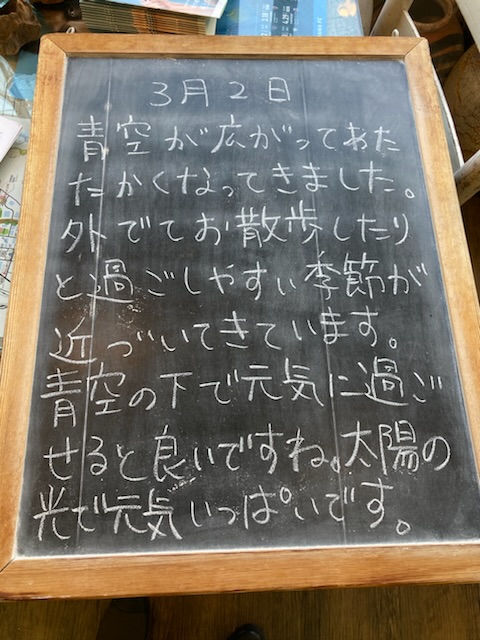 3月2日
青空が広がってあた
たかくなってきました。
外でてお散歩したり
と過ごしやすい季節が
近づいてきています。
青空の下で元気に過ご
せると良いですね。太陽の
光で元気いっぱいです。